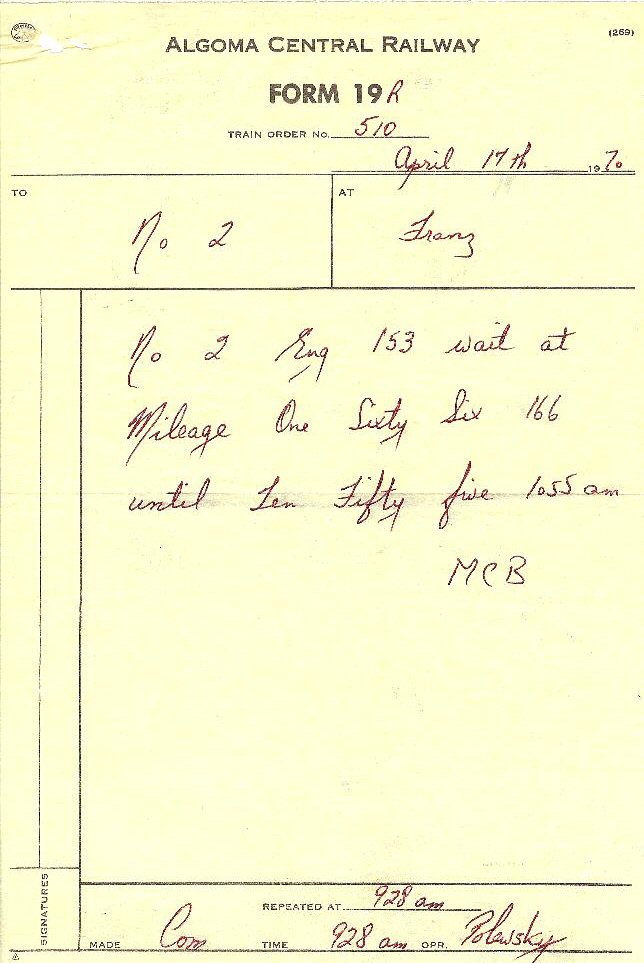 (259)
ALGOMA CENTRAL RAILWAY
FORM 19 R
TRAIN ORDER No. 510
April 17th 1970
TO No 2
AT Franz
No 2 Eng 153 wait at
Mileage One Sixty Six 166
until Ten Fifty five 1055 am
MCB
REPEATED AT 928 am
MADE Com TIME 928 am OPR. Polewsky
SIGNATURES